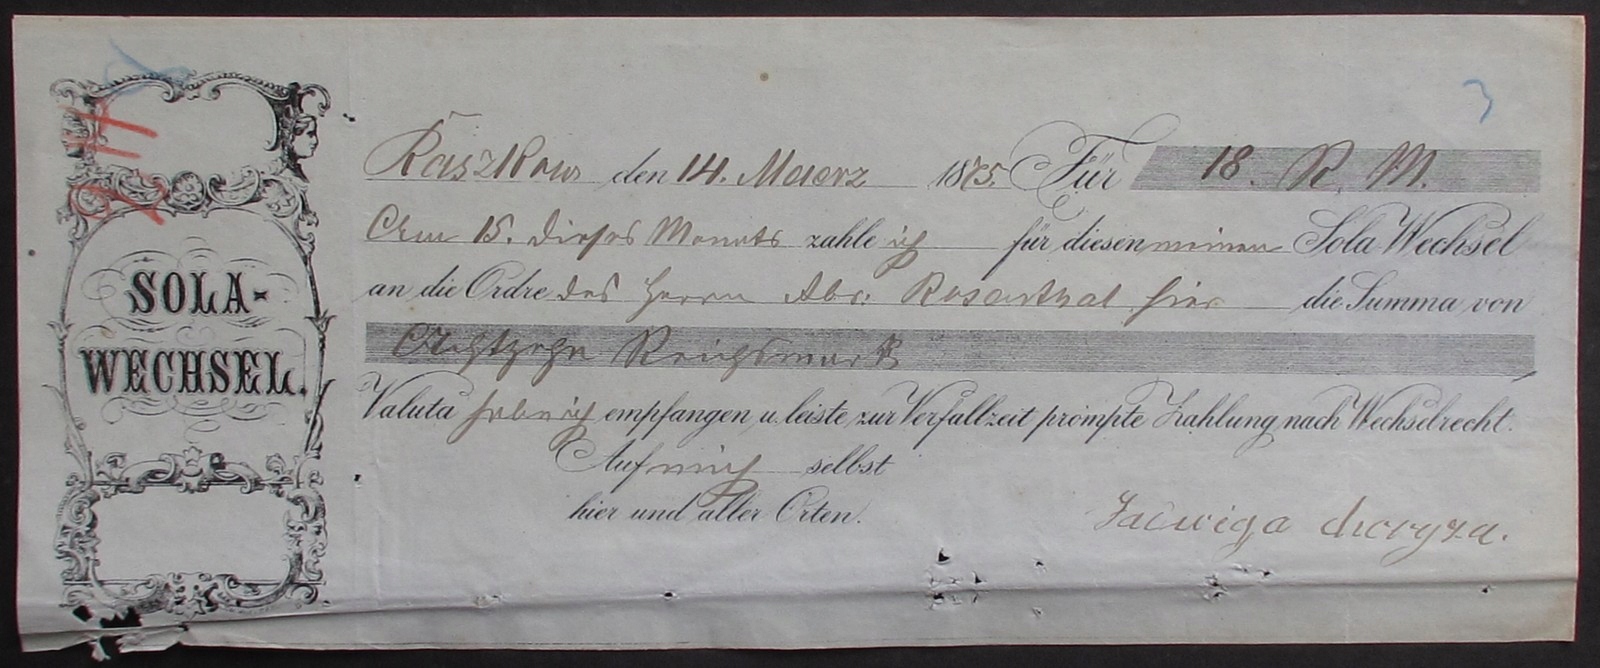 SOLA-
WECHSEL.
3
Raszkow den 14. Maerz 1875. Für 18. R. M.
Am 15. dieses Monats zahle ich für diesen meinen Sola Wechsel
an die Ordre des Herrn Abr. Rosenthal hier die Summa von
Achtzehn Reichsmark
Valuta habe ich empfangen u. leiste zur Verfallzeit prompte Zahlung nach Wechselrecht.
Auf mich selbst
hier und aller Orten.
Jadwiga